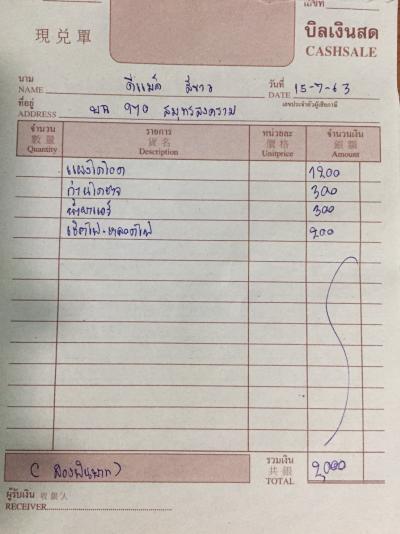 เลขที่
現兑單 บิลเงินสด
CASHSALE
นาม
NAME ดีแม็ค สีขาว วันที่ DATE 15-7-63
ที่อยู่ เลขประจำตัวผู้เสียภาษี
ADDRESS บล 970 สมุทรสงคราม
จำนวน รายการ หน่วยละ จำนวนเงิน
數量 貨名 價格 銀額
Quantity Description Unitprice Amount
แผงไดโอด 1200
ถ่านไดชาจ 300
300
เช็คไฟ-หลอดไฟ 200
รวมเงิน
(สองพันบาท) 共銀 2,000
TOTAL
ผู้รับเงิน 收銀人
RECEIVER